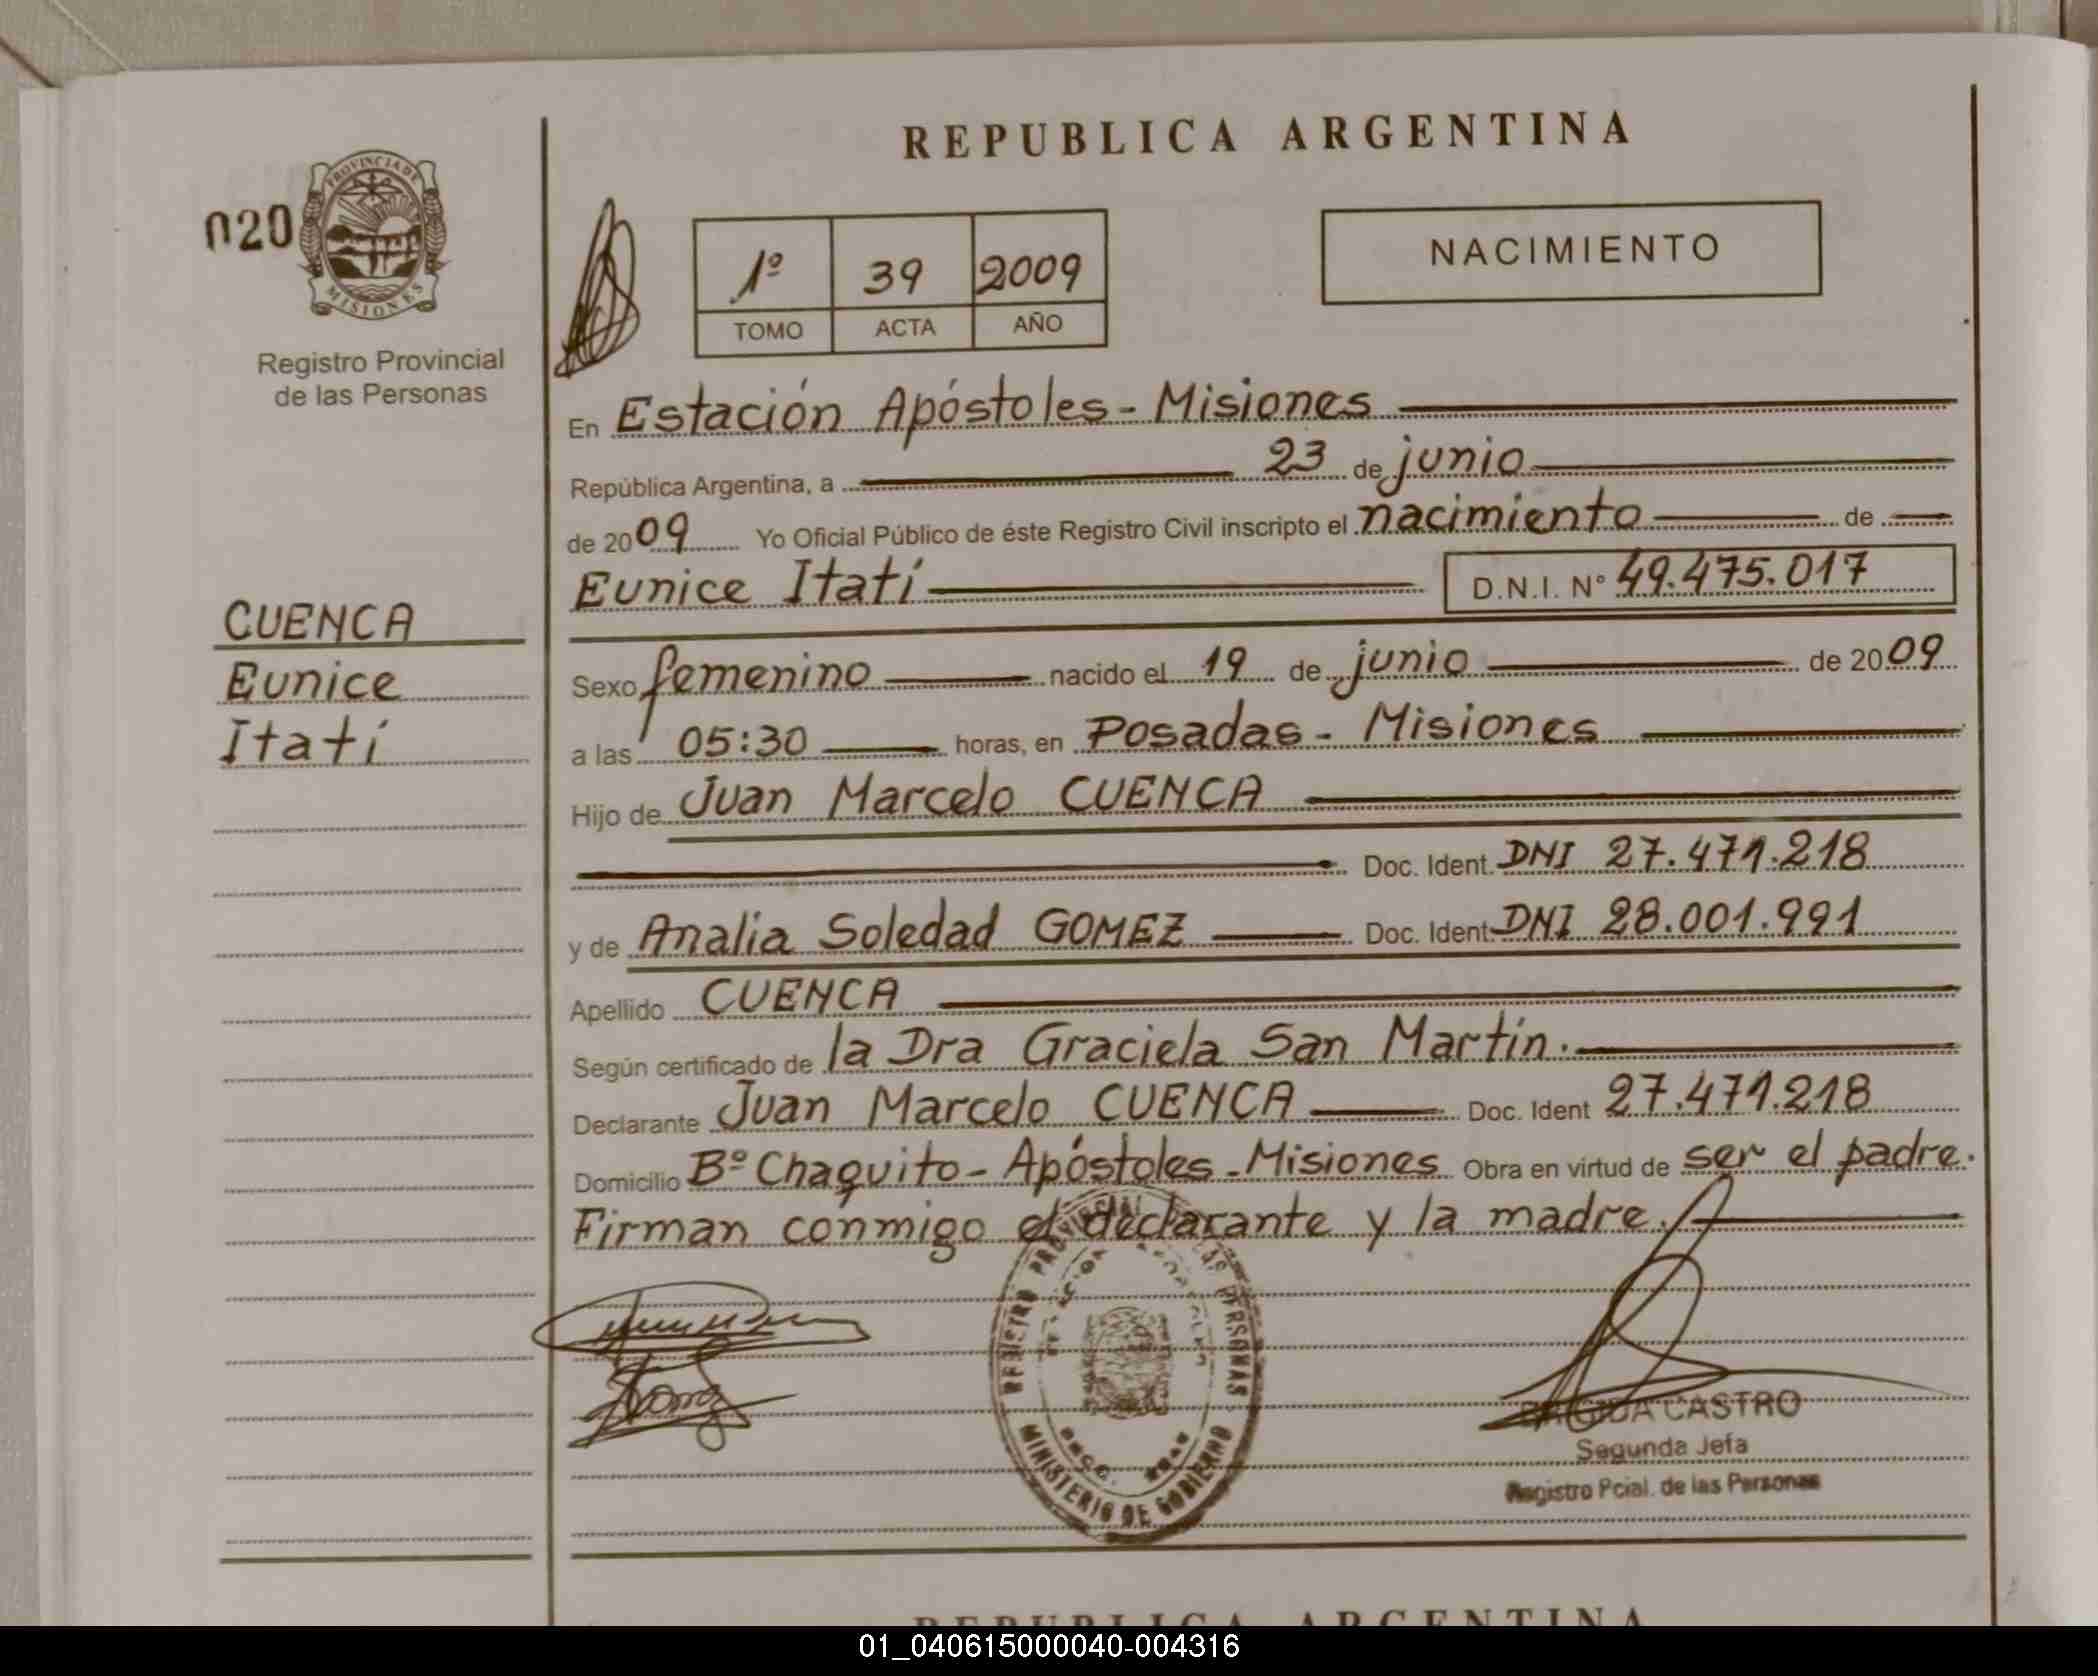 REPUBLICA ARGENTINA
020
PROVINCIA DE
MISIONES
Registro Provincial
de las Personas
1º 39 2009
TOMO ACTA AÑO
NACIMIENTO
En Estación Apóstoles - Misiones
República Argentina, a 23 de junio
de 2009 Yo Oficial Público de éste Registro Civil inscripto el nacimiento de
Eunice Itatí D.N.I. Nº 49.475.017
CUENCA
Eunice
Itatí
Sexo femenino nacido el 19 de junio de 2009
a las 05:30 horas, en Posadas - Misiones
Hijo de Juan Marcelo CUENCA
Doc. Ident. DNI 27.471.218
y de Analia Soledad GOMEZ Doc. Ident. DNI 28.001.991
Apellido CUENCA
Según certificado de la Dra Graciela San Martín.
Declarante Juan Marcelo CUENCA Doc. Ident 27.471.218
Domicilio Bº Chaquito - Apóstoles - Misiones Obra en virtud de ser el padre.
Firman conmigo el declarante y la madre.
REGISTRO PROVINCIAL DE LAS PERSONAS
MINISTERIO DE GOBIERNO
CASTRO
Segunda Jefa
Registro Pcial. de las Personas
REPUBLICA ARGENTINA
01_040615000040-004316